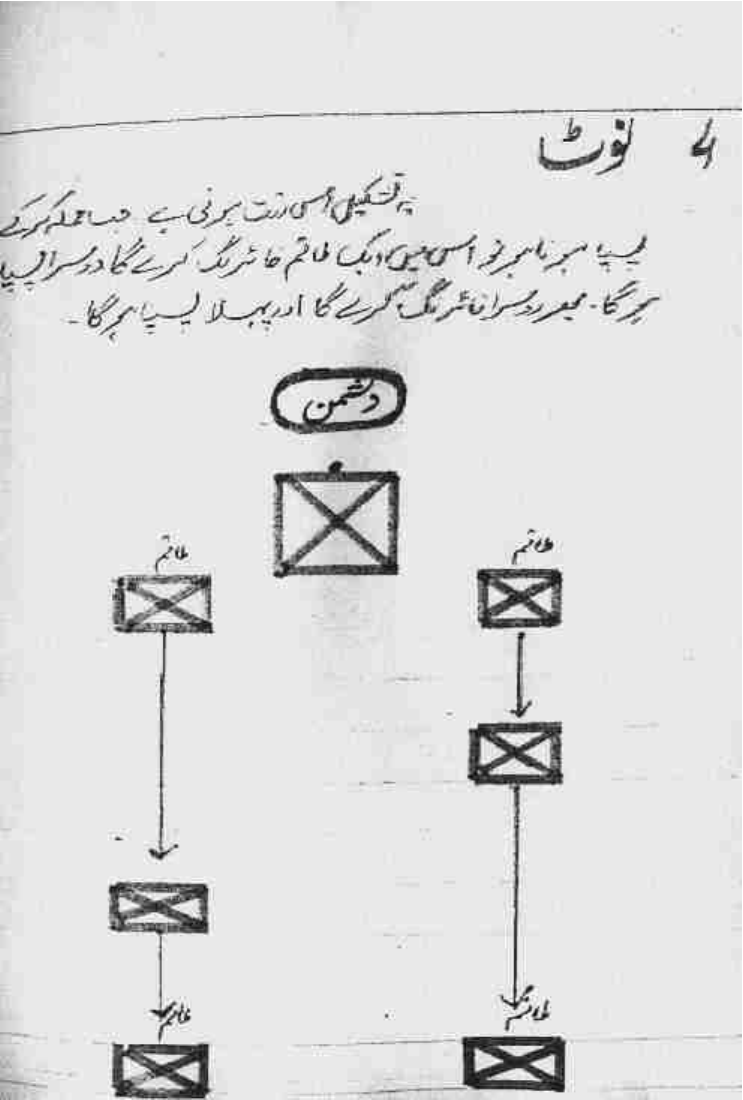 نوٹ
یہ تشکیل اسی وقت ہوتی ہے جب حملہ کرکے
پسپا ہونا ہو تو اس میں ایک طاقم فائرنگ کرے گا دوسرا پسپا
ہوگا۔ پھر دوسرا فائرنگ کرے گا اور پہلا پسپا ہوگا۔
دشمن
طاقم
طاقم
طاقم
طاقم